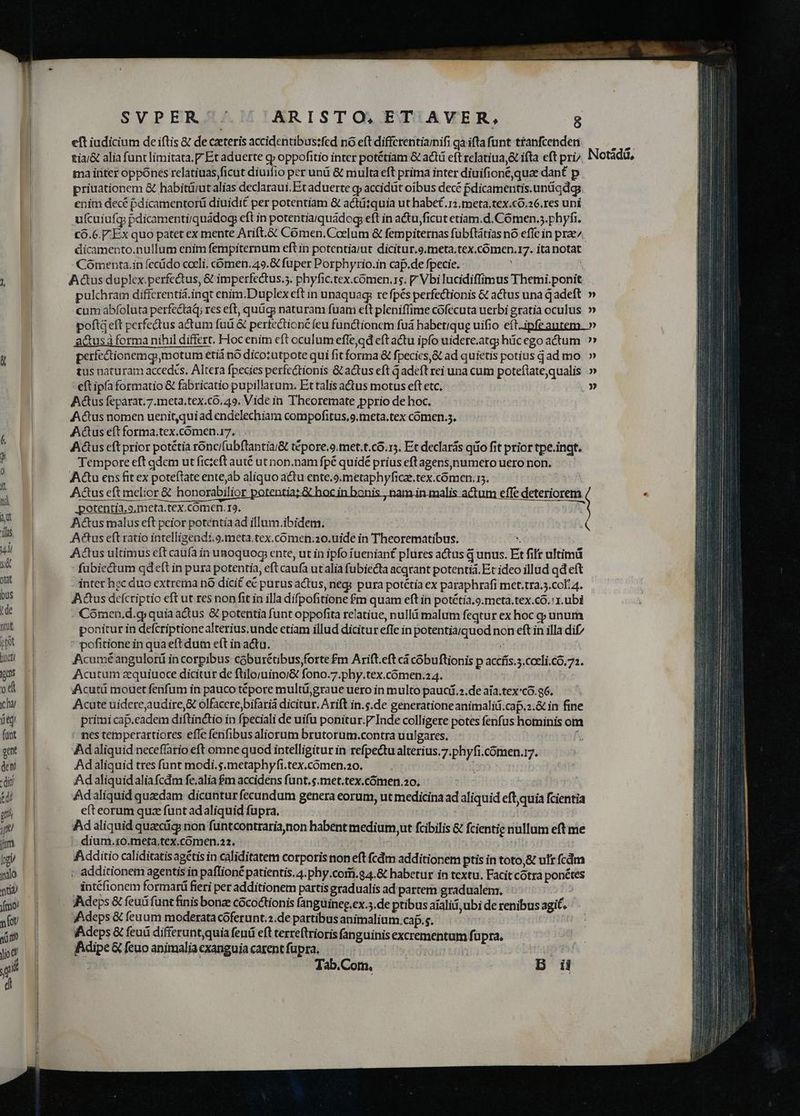 SVPER ARISTO. ET AVER. 8
est iudicium de istis & de cæteris accidentibus:sed nō est differentia,nisi qa ista sunt trãnscenden
tia/& alia sunt limitata.Γ Et aduerte ꝙ oppositio inter potētiam & actũ est relatiua,& ista est pri/ Notādũ,
ma inter oppōnes relatiuas,sicut diuisio per unũ & multa est prima inter diuisionē,quæ dant̃ p
priuationem & habitũ/ut alias declaraui.Et aduerte ꝙ accidũt oibus decē p̄dicamentis.unũqdꝙ
enim decē p̄dicamentorũ diuidit̃ per potentiam & actũ:quia ut habet̃.12.meta.tex.cō.26.res uni
uscuiusꝗ p̄dicamenti/quãdoꝗ est in potentia/quãdoꝗ est in actu,sicut etiam.d.Cōmen.3.physi.
cō.6.Γ Ex quo patet ex mente Arist.& Cōmen.Cœlum & sempiternas substãtias nō esse in præ/
dicamento.nullum enim sempiternum est in potentia/ut dicitur.9.meta.tex.cōmen.17. ita notat
Cōmenta.in secũdo cœli. cōmen.49.& super Porphyrio.in cap̄.de specie.
Actus duplex.perfectus, & imperfectus.3. physic.tex.cōmen.15. Γ Vbi lucidissimus Themi.ponit
pulchram differentiã.inqt enim.Duplex est in unaquaꝗ re sp̄es perfectionis & actus una q̃ adest »
cum absoluta perfectaq̃; res est, quũꝗ naturam suam est plenissime cōsecuta uerbi gratia oculus »
postq̃ est perfectus actum suũ & perfectionē seu functionem suã habet:quę uisio est.ipse autem »
actus à forma nihil differt. Hoc enim est oculum esse,qd est actu ipso uidere.atꝗ hũc ego actum »
perfectionemꝗ,motum etiã nō dico:utpote qui fit forma & species,& ad quietis potius q̃ ad mo »
tus naturam accedēs. Altera species perfectionis & actus est q̃ adest rei una cum potestate,qualis »
est ipsa formatio & fabricatio pupillarum. Et talis actus motus est etc. »
Actus separat.7.meta.tex.cō.49. Vide in Theoremate p̱prio de hoc.
Actus nomen uenit,qui ad endelechiam compositus,9.meta.tex cōmen.3.
Actus est forma.tex.cōmen.17.
Actus est prior potētia rōne/substantia/& tēpore.9.met.t.cō.13. Et declarãs qũo fit prior tpe.inqt.
Tempore est qdem ut sic:est autē ut non.nam spē quidē prius est agens,numero uero non.
Actu ens fit ex potestate ente,ab aliquo actu ente.9.metaphysicæ.tex.cōmen.13.
Actus est melior & honorabilior potentia:& hoc in bonis , nam in malis actum esse deteriorem
potentia.9.meta.tex.cōmen.19.
Actus malus est peior potentia ad illum.ibidem.
Actus est ratio intelligendi.9.meta.tex.cōmen.20.uide in Theorematibus.
Actus ultimus est causa in unoquoꝗ ente, ut in ipso ueniant̃ plures actus q̃ unus. Et sil̃r ultimũ
subiectum qd est in pura potentia, est causa ut alia subiecta acqrant potentiã.Et ideo illud qd est
inter hęc duo extrema nō dicit̃ eē purus actus, neꝗ pura potētia ex paraphrasi met.tra.3.col̃.4.
Actus descriptio est ut res non fit in illa dispositione s̃m quam est in potētia.9.meta.tex.cō.11.ubi
Cōmen.d.ꝙ quia actus & potentia sunt opposita relatiue, nullũ malum seqtur ex hoc ꝙ unum
ponitur in descriptione alterius.unde etiam illud dicitur esse in potentia/quod non est in illa dis/
positione in qua est dum est in actu.
Acumē angulorũ in corpibus cōburētibus,forte s̃m Arist.est cã cōbustionis p accñs.3.cœli.cō.72.
Acutum æquiuoce dicitur de stilo/uino/& sono.7.phy.tex.cōmen.24.
Acutũ mouet sensum in pauco tēpore multũ,graue uero in multo paucũ.2.de aīa.tex'cō.86.
Acute uidere,audire,& olfacere,bifariã dicitur. Arist in.5.de generatione animaliũ.cap̄.2.& in fine
primi cap̄.eadem distinctio in speciali de uisu ponitur.Γ Inde colligere potes sensus hominis om
nes temperartiores esse sensibus aliorum brutorum.contra uulgares.
Ad aliquid necessario est omne quod intelligitur in respectu alterius.7.physi.cōmen.17.
Ad aliquid tres sunt modi.5.metaphysi.tex.cōmen.20.
Ad aliquid alia scdm se,alia s̃m accidens sunt.5.met.tex.cōmen.20.
Ad aliquid quædam dicuntur secundum genera eorum, ut medicina ad aliquid est,quia scientia
est eorum quæ sunt ad aliquid supra.
Ad aliquid quæcũꝗ non sunt contraria,non habent medium,ut scibilis & scientię nullum est me
dium.10.meta.tex.cōmen.22.
Additio caliditatis agētis in caliditatem corporis non est scdm additionem ptis in toto,& ul̃r scdm
additionem agentis in passionē patientis.4.phy.com̃.84.& habetur in textu. Facit cōtra ponētes
intēsionem formarũ fieri per additionem partis gradualis ad partem gradualem.
Adeps & seuũ sunt finis bonæ cōcoctionis sanguineę.ex.3.de ptibus aīaliũ,ubi de renibus agit̃.
Adeps & seuum moderata cōferunt.2.de partibus animalium.cap̄.5.
Adeps & seuũ differunt,quia seuũ est terrestrioris sanguinis excrementum supra.
Adipe & seuo animalia exanguia carent supra.
Tab.Com, B ii